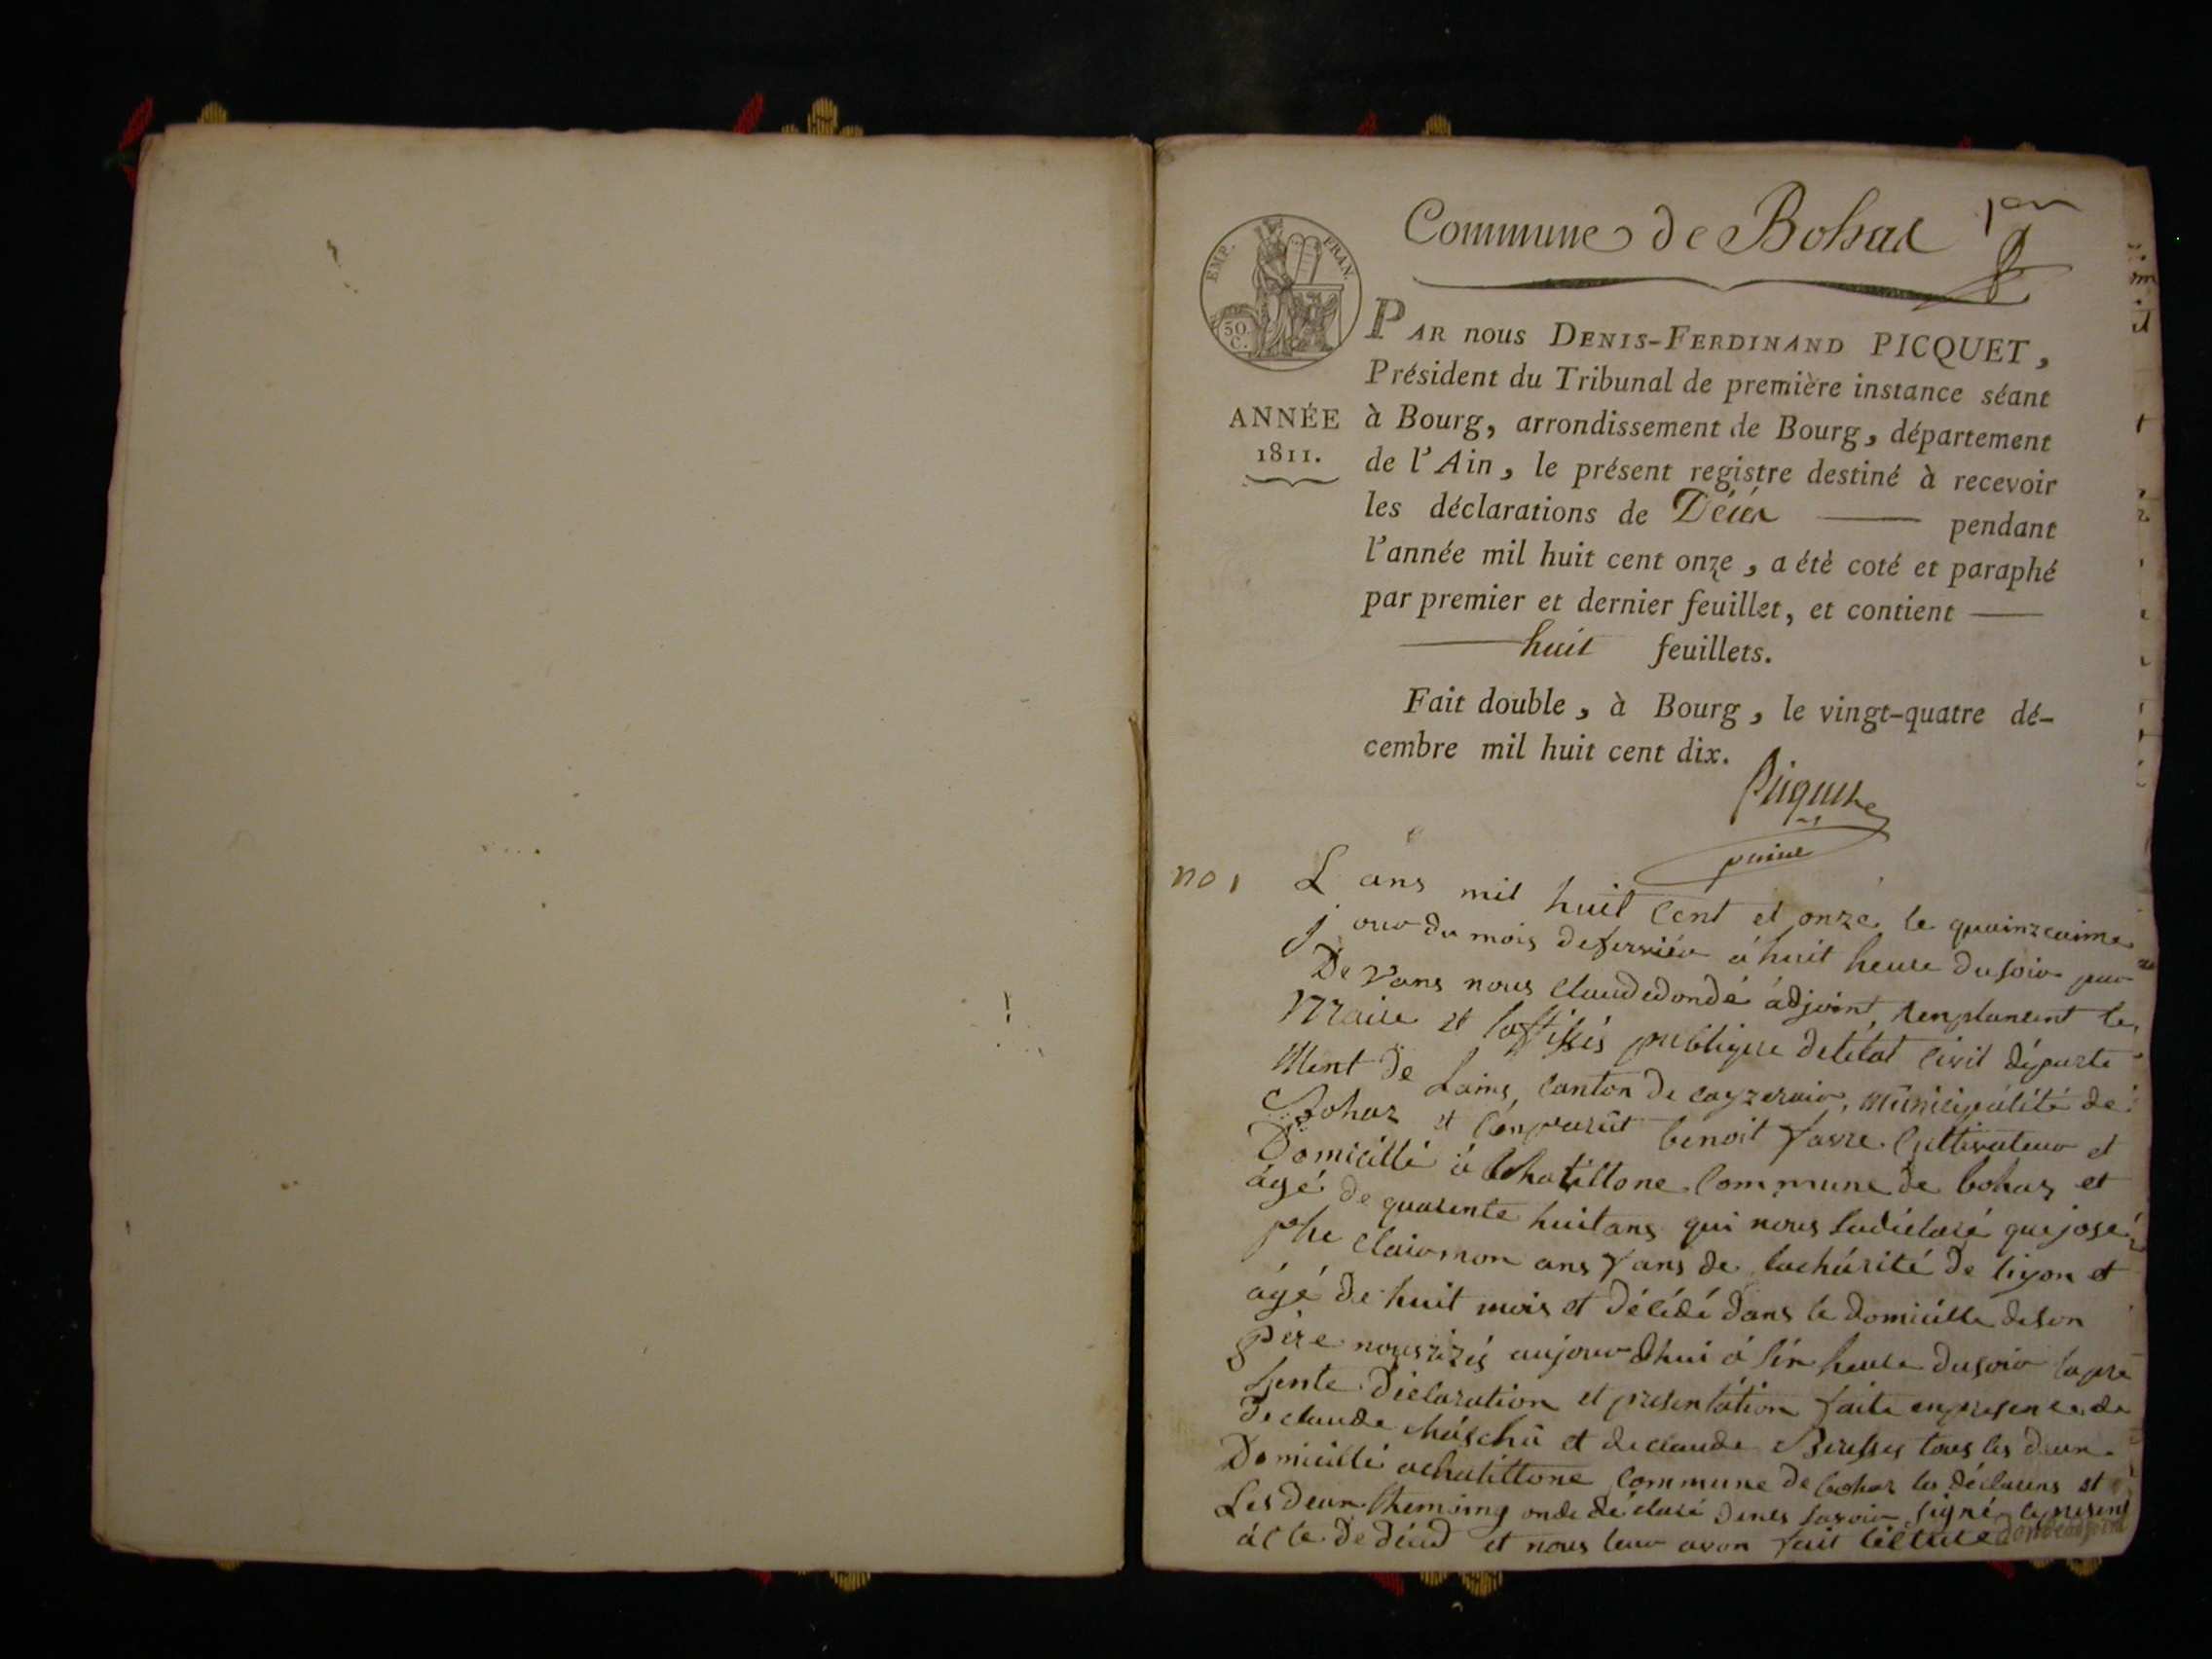 Commune de Bohas 1er
EMP. FRAN.
50.
C.
PAR nous DENIS-FERDINAND PICQUET,
Président du Tribunal de première instance séant
ANNÉE
1811.
à Bourg, arrondissement de Bourg, département
de l'Ain, le présent registre destiné à recevoir
les déclarations de Décès pendant
l'année mil huit cent onze, a été coté et paraphé
par premier et dernier feuillet, et contient
huit feuillets.
Fait double, à Bourg, le vingt-quatre dé-
cembre mil huit cent dix.
Picquet
no 1
L ans mil huit cent et onze le quainzeaime
jour du mois deferriér á huit heure dusoir par
De vans nous claudedondé adjoint, renplancent le
Maire et loffissiés publique delétat civil départe
Ment de Lains, canton de cayzeriair, municipálité de
Bohas et conparût benoit favre cultivateur et
Domicillé á Chatillone commune de bohas et
ágé de quarente huit ans qui nous ladéclaré que josé
phe clairmon ans fans de lachárité de liyon et
ágé de huit mois et décédé dans le domicille deson
pére nourrisiés aujour dhui á sin heure dusoir la pré
sente déclaration et présentátion faite enpresence de
de claude et de claude tous les deux
Domicillé achatillone commune de bohas les déclarens et
Les deux themoing onde déclaré denes savoir signé le present
ácte de décéd et nous leur avon fait lécture dondé adjoint